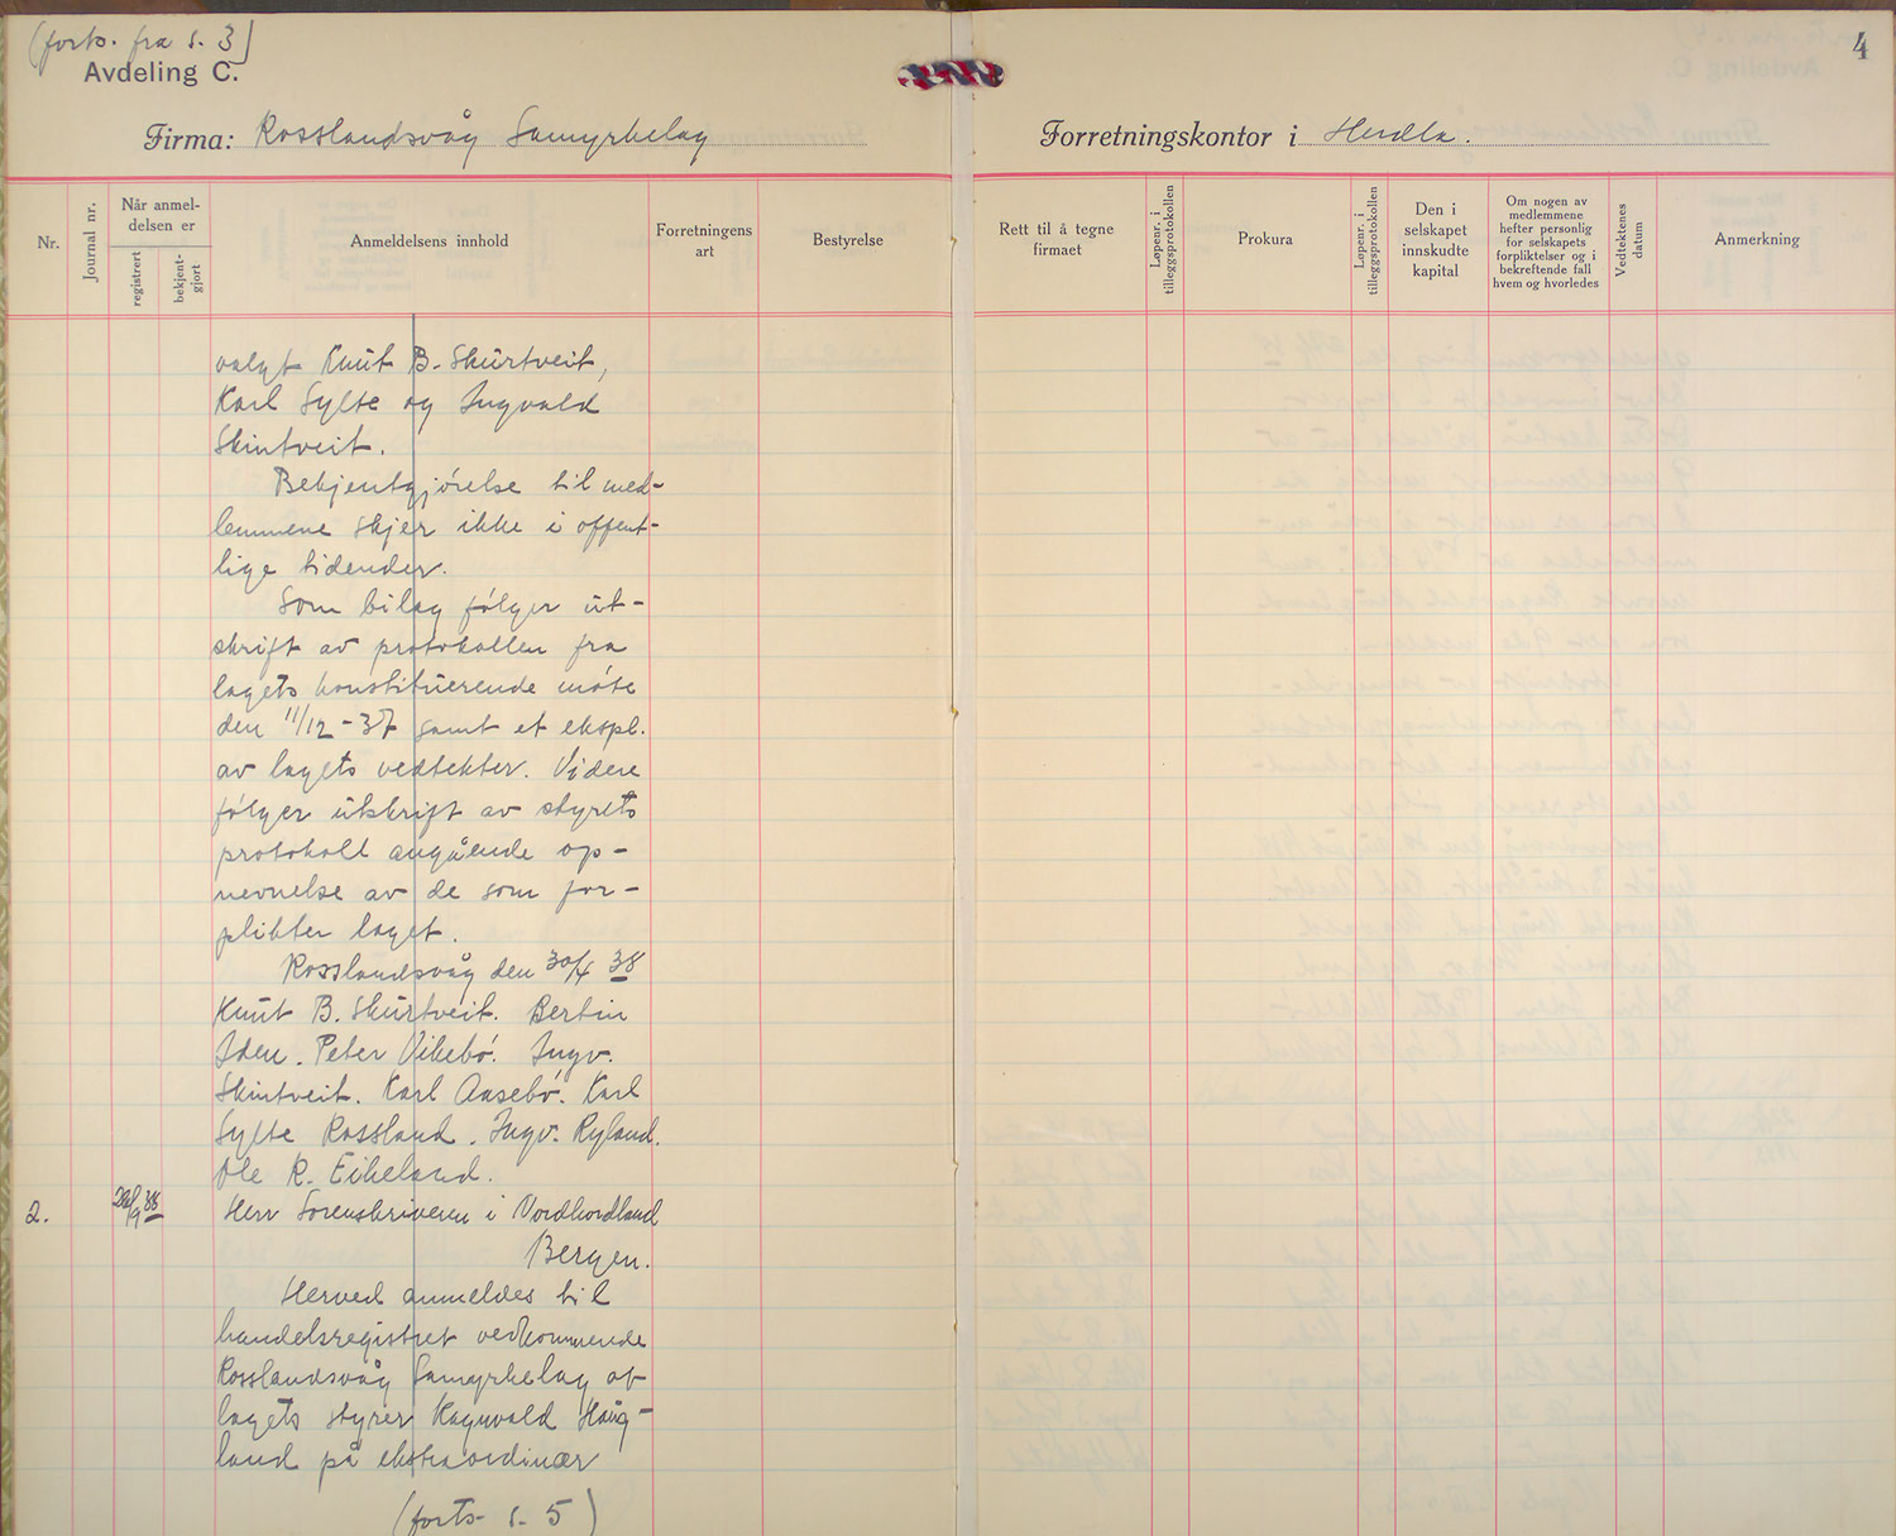 (forts. fra s. 3)
Avdeling C.
4
Firma: Rosslandsvåg Samyrkelag
Forretningskontor i Herdla.
Nr.
Journal nr.
Når anmel-
delsen er
registrert
bekjent-
gjort
Anmeldelsens innhold
Forretningens
art
Bestyrelse
Rett til å tegne
firmaet
Løpenr. i
tilleggsprotokollen
Prokura
Løpenr. i
tilleggsprotokollen
Den i
selskapet
innskudte
kapital
Om nogen av
medlemmene
hefter personlig
for selskapets
forpliktelser og i
bekreftende fall
hvem og hvorledes
Vedtektenes
datum
Anmerkning
valgt Knut B. Skurtveit,
Karl Sylte og Ingvald
Skintveit.
Bekjentgjørelse til med-
lemmene skjer ikke i offent-
lige tidender.
Som bilag følger ut-
skrift av protokollen fra
lagets konstituerende møte
den 11/12 - 37 samt et ekspl.
av lagets vedtekter. Videre
følger utskrift av styrets
protokoll angående op-
nevnelse av de som for-
plikter laget.
Rosslandsvåg den 30/4 38
Knut B. Skurtveit. Bertin
Iden. Peter Vikebø. Ingv.
Skintveit. Karl Aasebø. Karl
Sylte Rossland. Ingv. Ryland.
Ole R. Eikeland.
2. 38 Herr Sorenskriveren i Nordhordland
Bergen.
Herved anmeldes til
handelsregistret vedkommende
Rosslandsvåg Samyrkelag at
lagets styrer Ragnvald Haug-
land på ekstraordinær
(forts. s. 5)